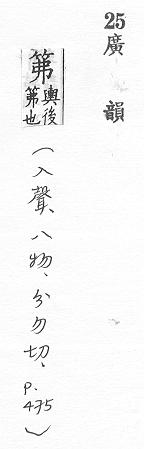 25廣韻
笰 輿後
笰也
(入聲、八物、分勿切、p.475)